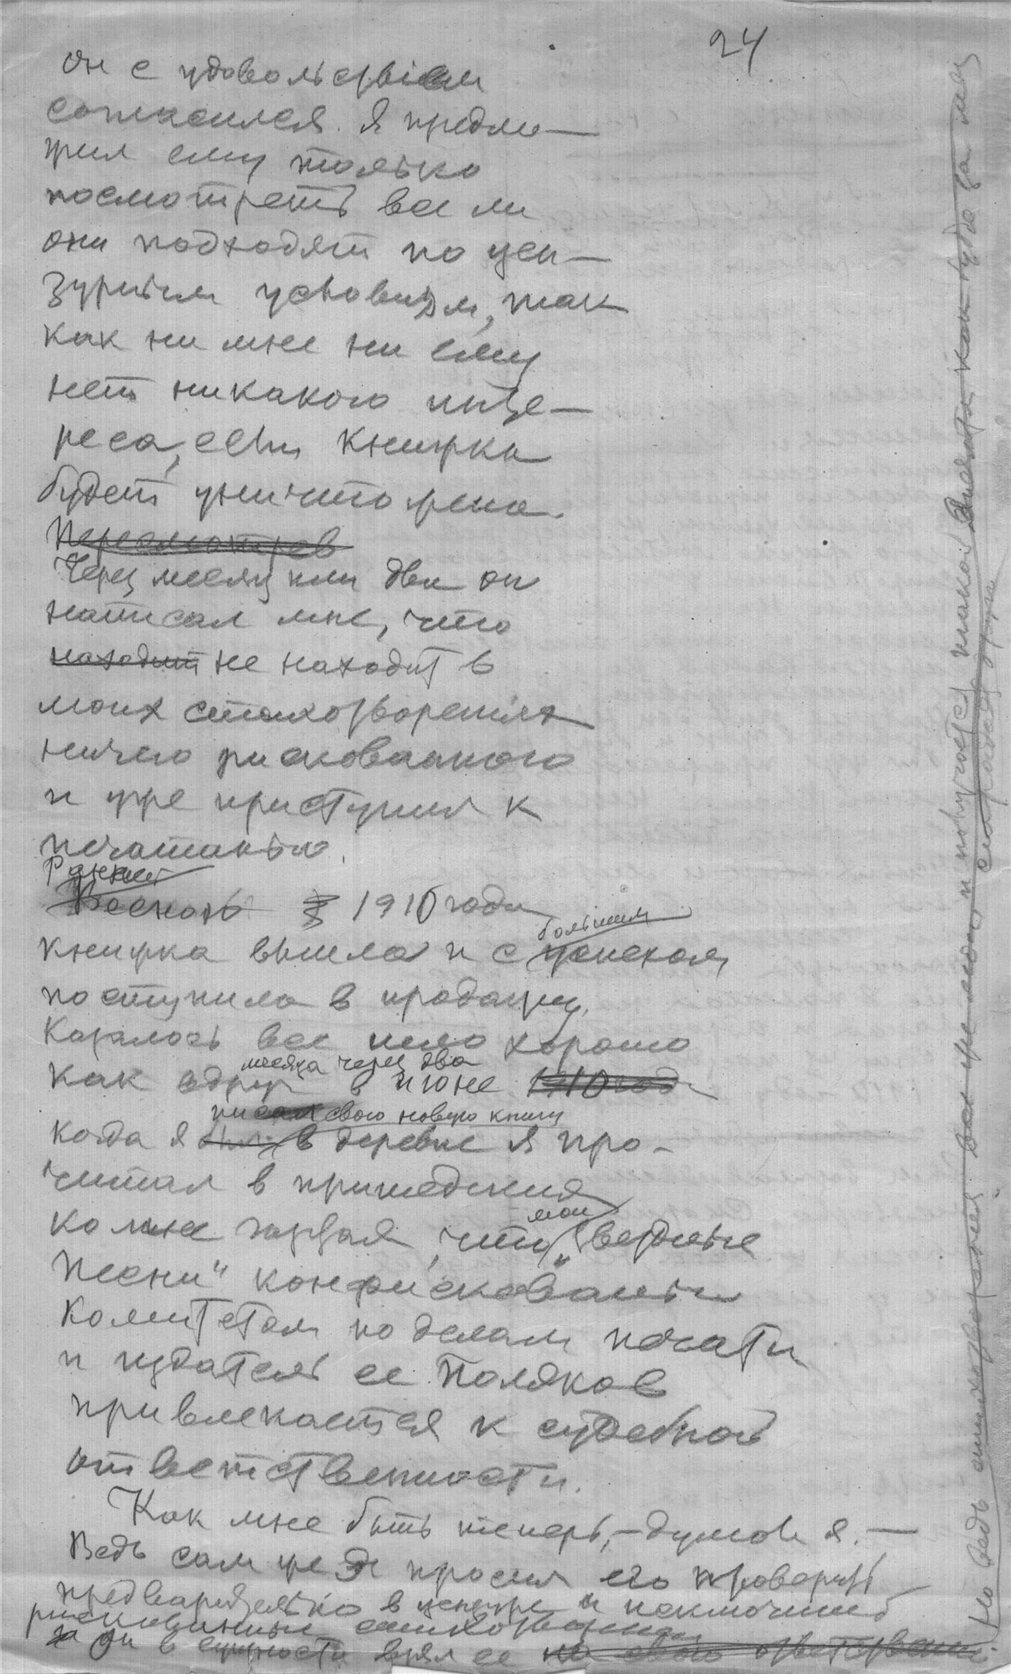 24
он с удовольствием
согласился. Я предло—
жил ему только
посмотреть все ли
они подходят по цен—
зурным условиям, так
как ни мне ни ему
нет никакого инте—
реса, если книжка
будет уничтожена.
Пересмотрев
Через месяц или два он
написал мне, что
находит не находит в
моих стихотворениях
ничего рискованного
и уже приступил к
печатанью.
Ранней
Весною 1910 года
большим
книжка вышла и с успехом
поступила в продажу.
Казалось все шло хорошо
месяца через два
как вдруг в июне 1910 года
писал свою новую книгу
когда я в деревне я про-
читал в пришедшей
мои
ко мне газете, что „верные
Песни" конфискованы
комитетом по делам печати
и издатель ее Поляков
привлекается к судебной
ответственности.
Как мне быть теперь, – думал я. —
Ведь сам же я просил его проверить
предварительно в цензуре и
рискованные стихотворения
за он в сущности взял ее на свою ответственн.
Но ведь стихотворений все же мало и получается такой